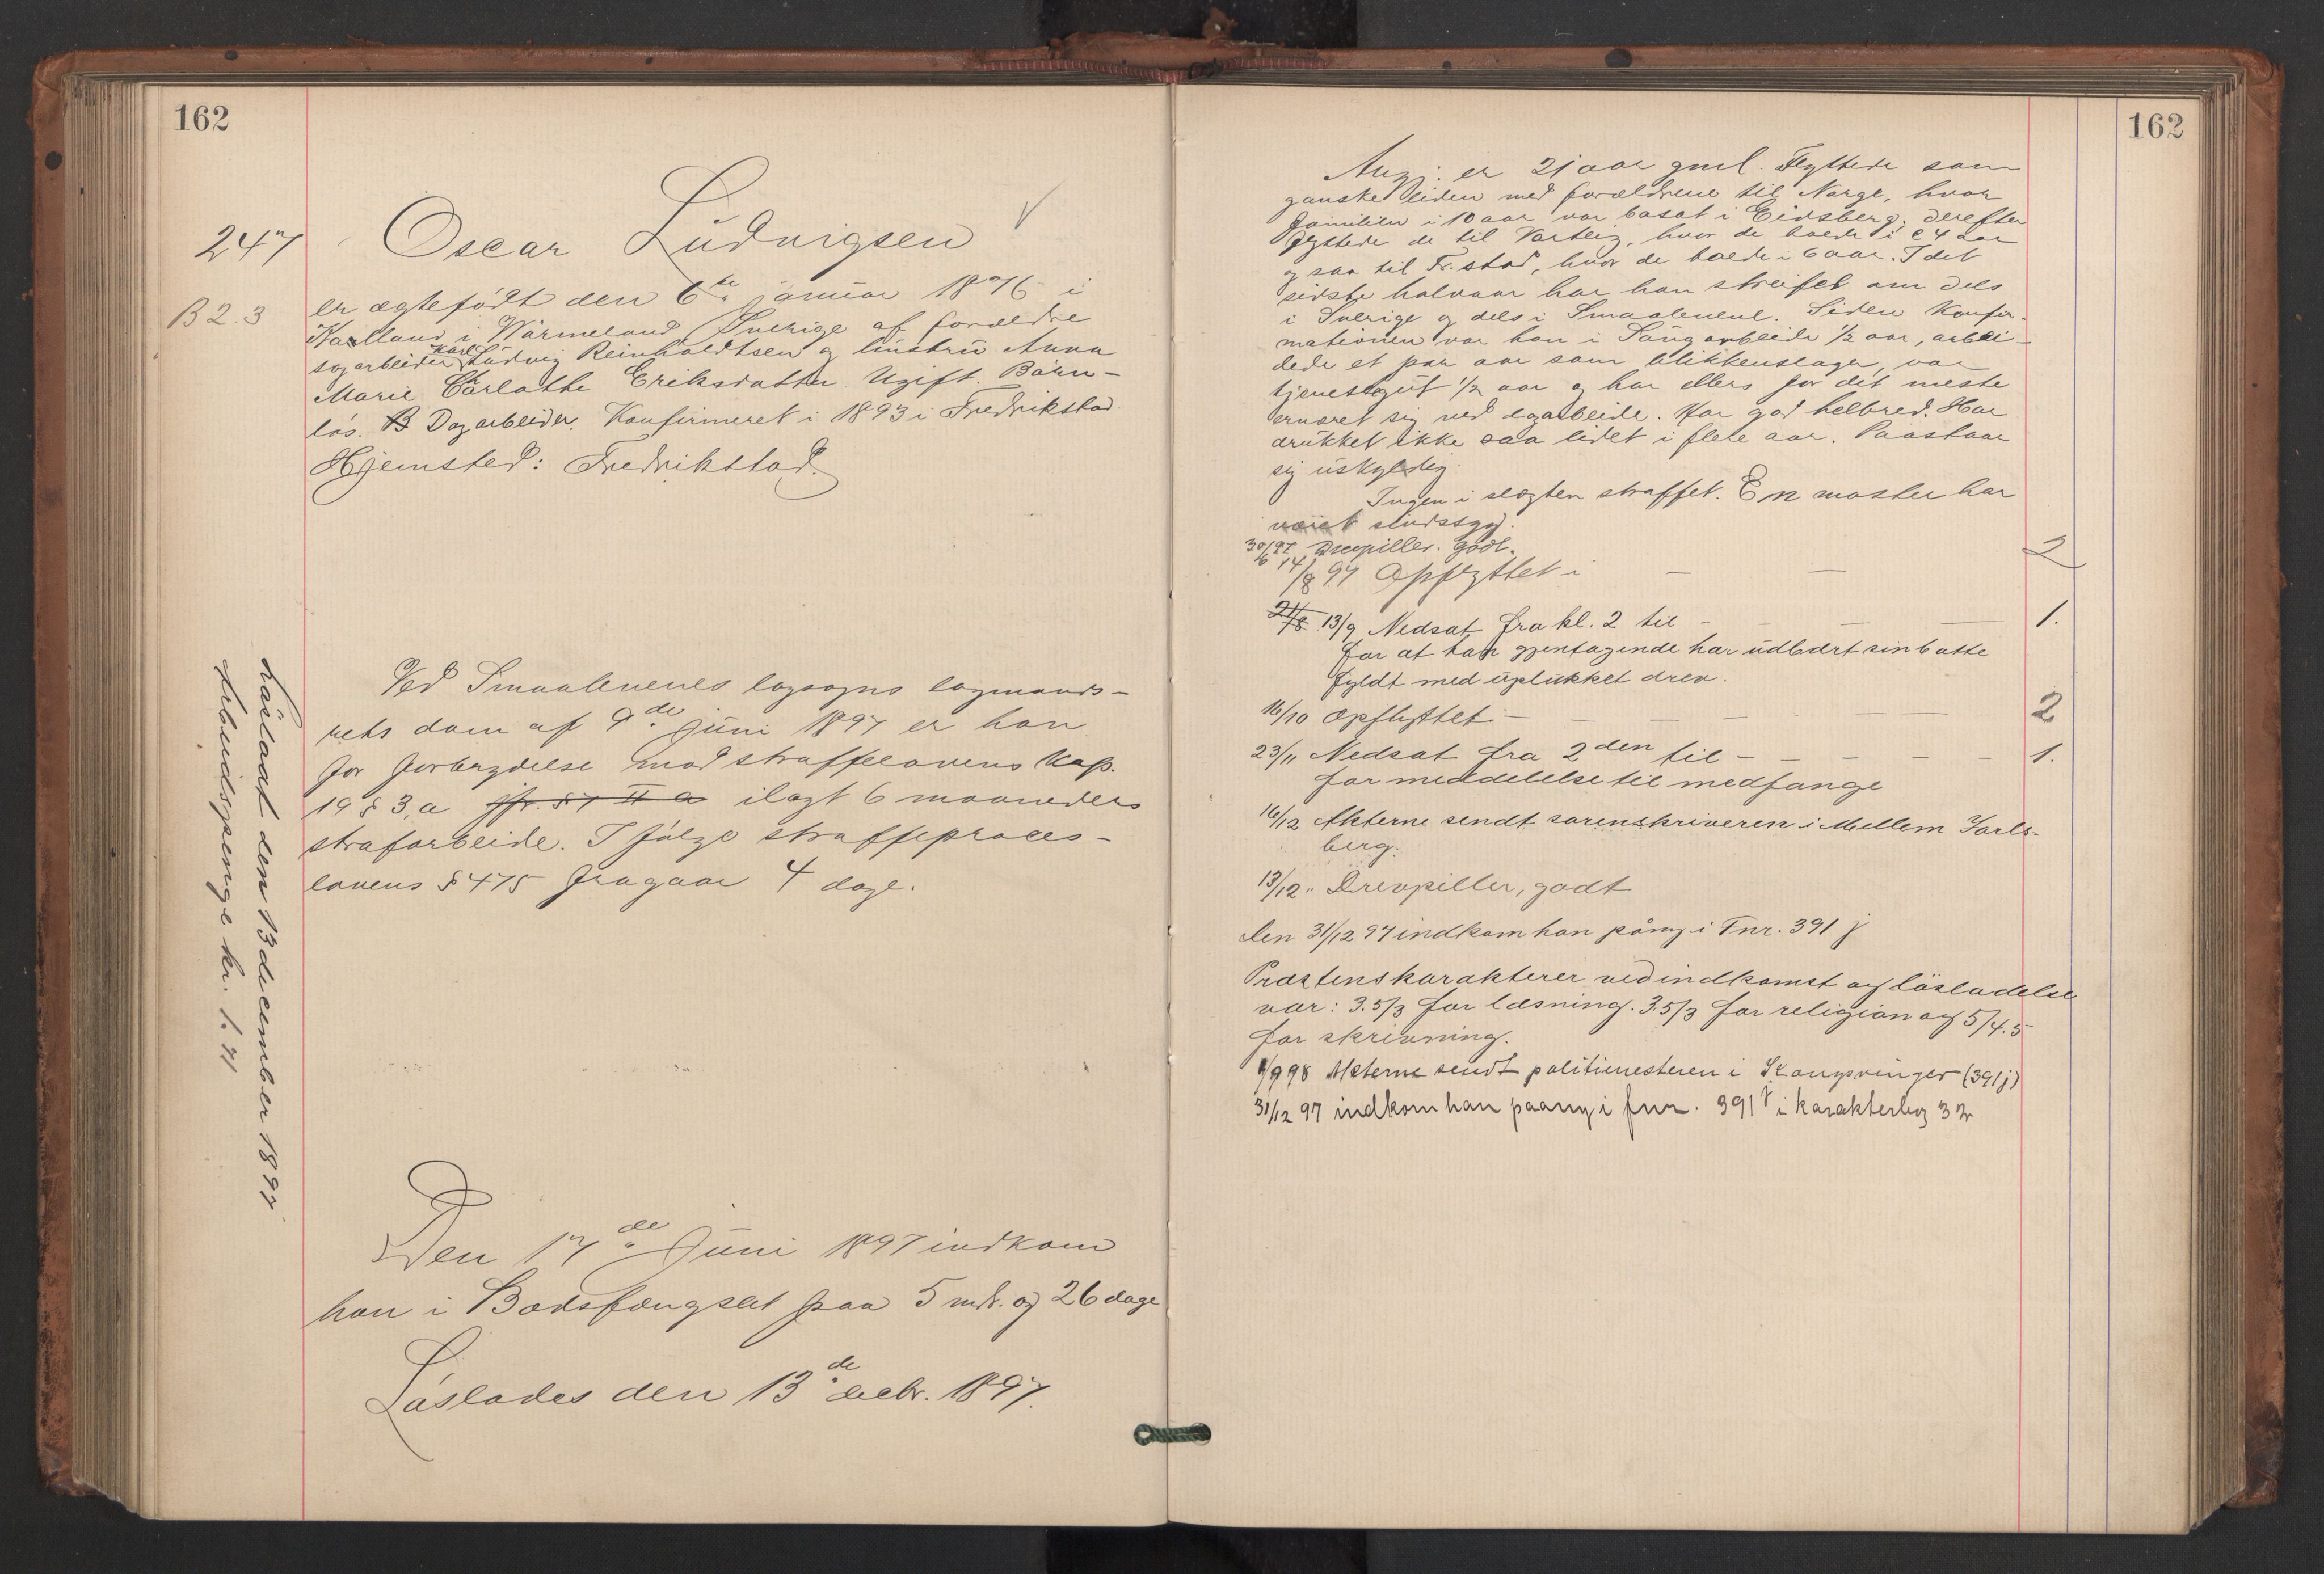 162
247
Oscar Ludvigsen
B 2.3
er ægtefødt den 6te januar 1876 i
Karlland i Wärmeland Sverige af forældre
sagarbeider Karl Ludvig Reinholdtsen og hustru Anna
Marie Charlotte Eriksdatter. Ugift. Barn-
løs. Dagarbeider. Konfirmeret i 1893 i Fredrikstad.
Hjemsted: Fredrikstad.
Ved Smaalenenes lagsogns lagmands-
rets dom af 9de juni 1897 er han
for forbrydelse mod straffelovens Kap.
19 § 3, a jfr. § 7 II a ilagt 6 maaneders
strafarbeide. I følge straffeproces-
lovens § 475 fragaar 4 dage.
Den 17de Juni 1897 indkom
han i Bodsfængslet paa 5 mdr. og 26 dage
Løslades den 13de decbr. 1897.
Løsladt den 13 december 1897
Arbeidspenge kr. 1.71
162
Ang: er 21 aar gml. Flyttede som
ganske liden med forældrene til Norge, hvor
familien i 10 aar var bosat i Eidsberg; derefter
flyttede de til Varteig, hvor de boede i c 4 aar
og saa til Fr.stad, hvor de boede i 6 aar. I det
sidste halvaar har han streifet om dels
i Sverige og dels i Smaalenene. Siden Konfir-
mationen var han i Sagarbeide 1/2 aar, arbei-
dede et par aar som blikkenslager, var
tjenestegut 1/2 aar og har ellers for det meste
ernæret sig ved dagarbeide. Har god helbred. Har
drukket ikke saa lidet i flere aar. Paastaar
sig uskyldig.
Ingen i slægten straffet. En moster har
været sindssyg.
30/6 97 Drevpiller. godt.
14/8 97 Opflyttet i — — 2
21/8 13/9 Nedsat fra kl. 2 til — — — 1.
for at han gjentagende har udbært sin bøtte
fyldt med uplukket drev.
16/10 Opflyttet — — — — — 2
23/11 Nedsat fra 2den til — — — — — 1.
for meddelelse til medfange
16/12 Akterne sendt sorenskriveren i Mellem Jarls-
berg.
13/12 " Drevpiller, godt
Den 31/12 97 indkom han påny i Fnr. 391 j
Præstens karakterer ved indkomst og løsladelse
var: 3.5/3 for læsning. 3.5/3 for religion og 5/4.5
for skrivning.
1/9 98 Akterne sendt politimesteren i Kongsvinger (391 j)
31/12 97 indkom han paany i fnr. 391 j i karakterbog 32